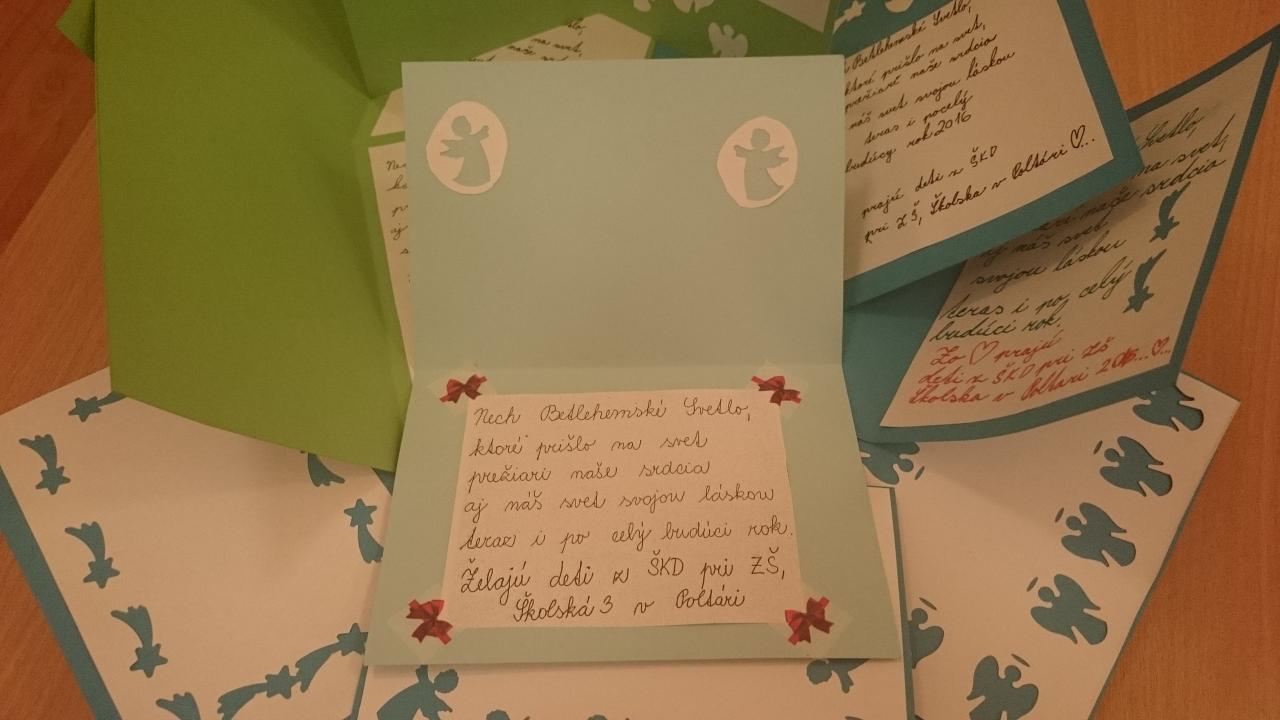 Nech Betlehemské Svetlo,
ktoré prišlo na svet
prežiari naše srdcia
aj náš svet svojou láskou
teraz i po celý budúci rok.
Želajú deti z ŠKD pri ZŠ,
Školská 3 v Poltári
Betlehemské Svetlo,
ktoré prišlo na svet,
prežiari naše srdcia
náš svet svojou láskou
teras i pocelý
budúcy rok 2016
prajú deti z ŠKD
pri ZŠ, Školska v Poltári ♡...
Svetlo,
na svet,
naše srdcia
aj náš svet
svojou láskou
teras i po celý
budúci rok.
Zo ♡ prajú
deti z ŠKD pri ZŠ
Školska v Poltári
na svet,
naše